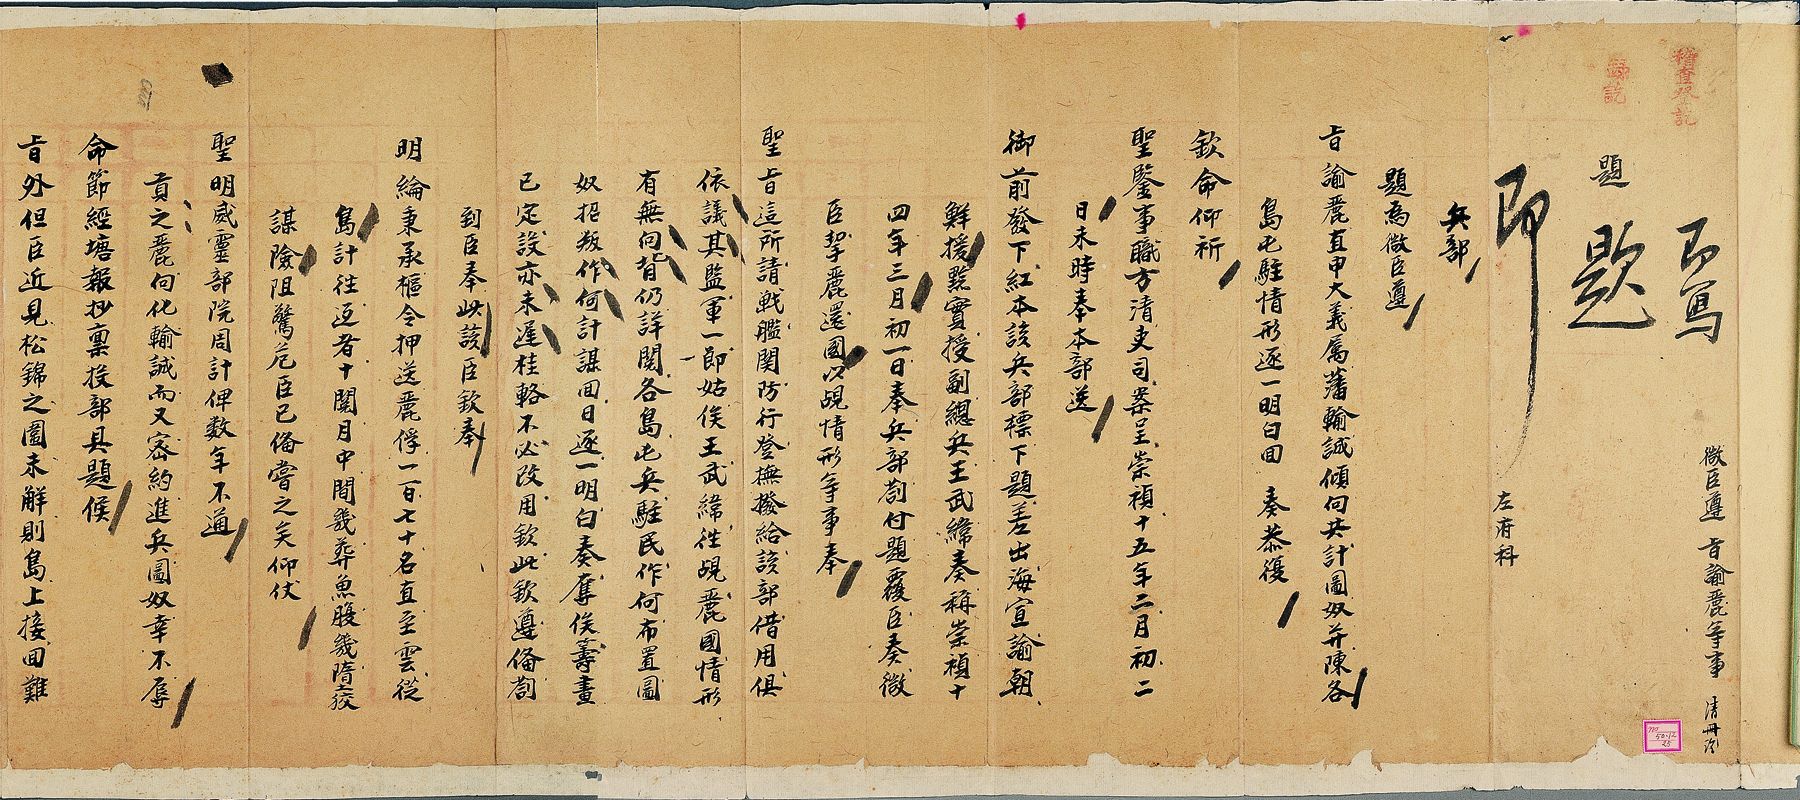 稽查登記
錄訖
即寫
題
題
即
微臣遵 旨諭麗等事
左府科
兵部
題為微臣遵
旨諭麗直申大義屬藩輸誠傾向共計圖奴并陳各
島屯駐情形逐一明白回 奏恭復
欽命仰祈
聖鑒事職方清吏司案呈崇禎十五年二月初二
日未時奉本部送
御前發下紅本該兵部標下題差出海宣諭朝
鮮援黔實授副總兵王武緯奏稱崇禎十
四年三月初一日奉兵部劄付題覆臣奏微
臣挈麗還國以覘情形等事奉
聖旨這所請戰艦関防行登撫撥給該部借用俱
依議其監軍一節姑俟王武緯徃覘麗國情形
有無向背仍詳閱各島屯兵駐民作何布置圖
奴招叛作何計謀回日逐一明白奏奪俟籌畫
已定設亦未遲桂輅不必改用欽此欽遵備劄
到臣奉此該臣欽奉
明綸秉承樞令押送麗俘一百七十名直至雲從
島計徃返者十閱月中間幾葬魚腹幾隋狡
謀險阻驚危臣已備嘗之矣仰仗
聖明威靈部院周計俾數年不通
貢之麗向化輸誠而又密約進兵圖奴幸不辱
命節經塘報抄稟投部具題候
旨外但臣近見松錦之圍未解則島上接回難